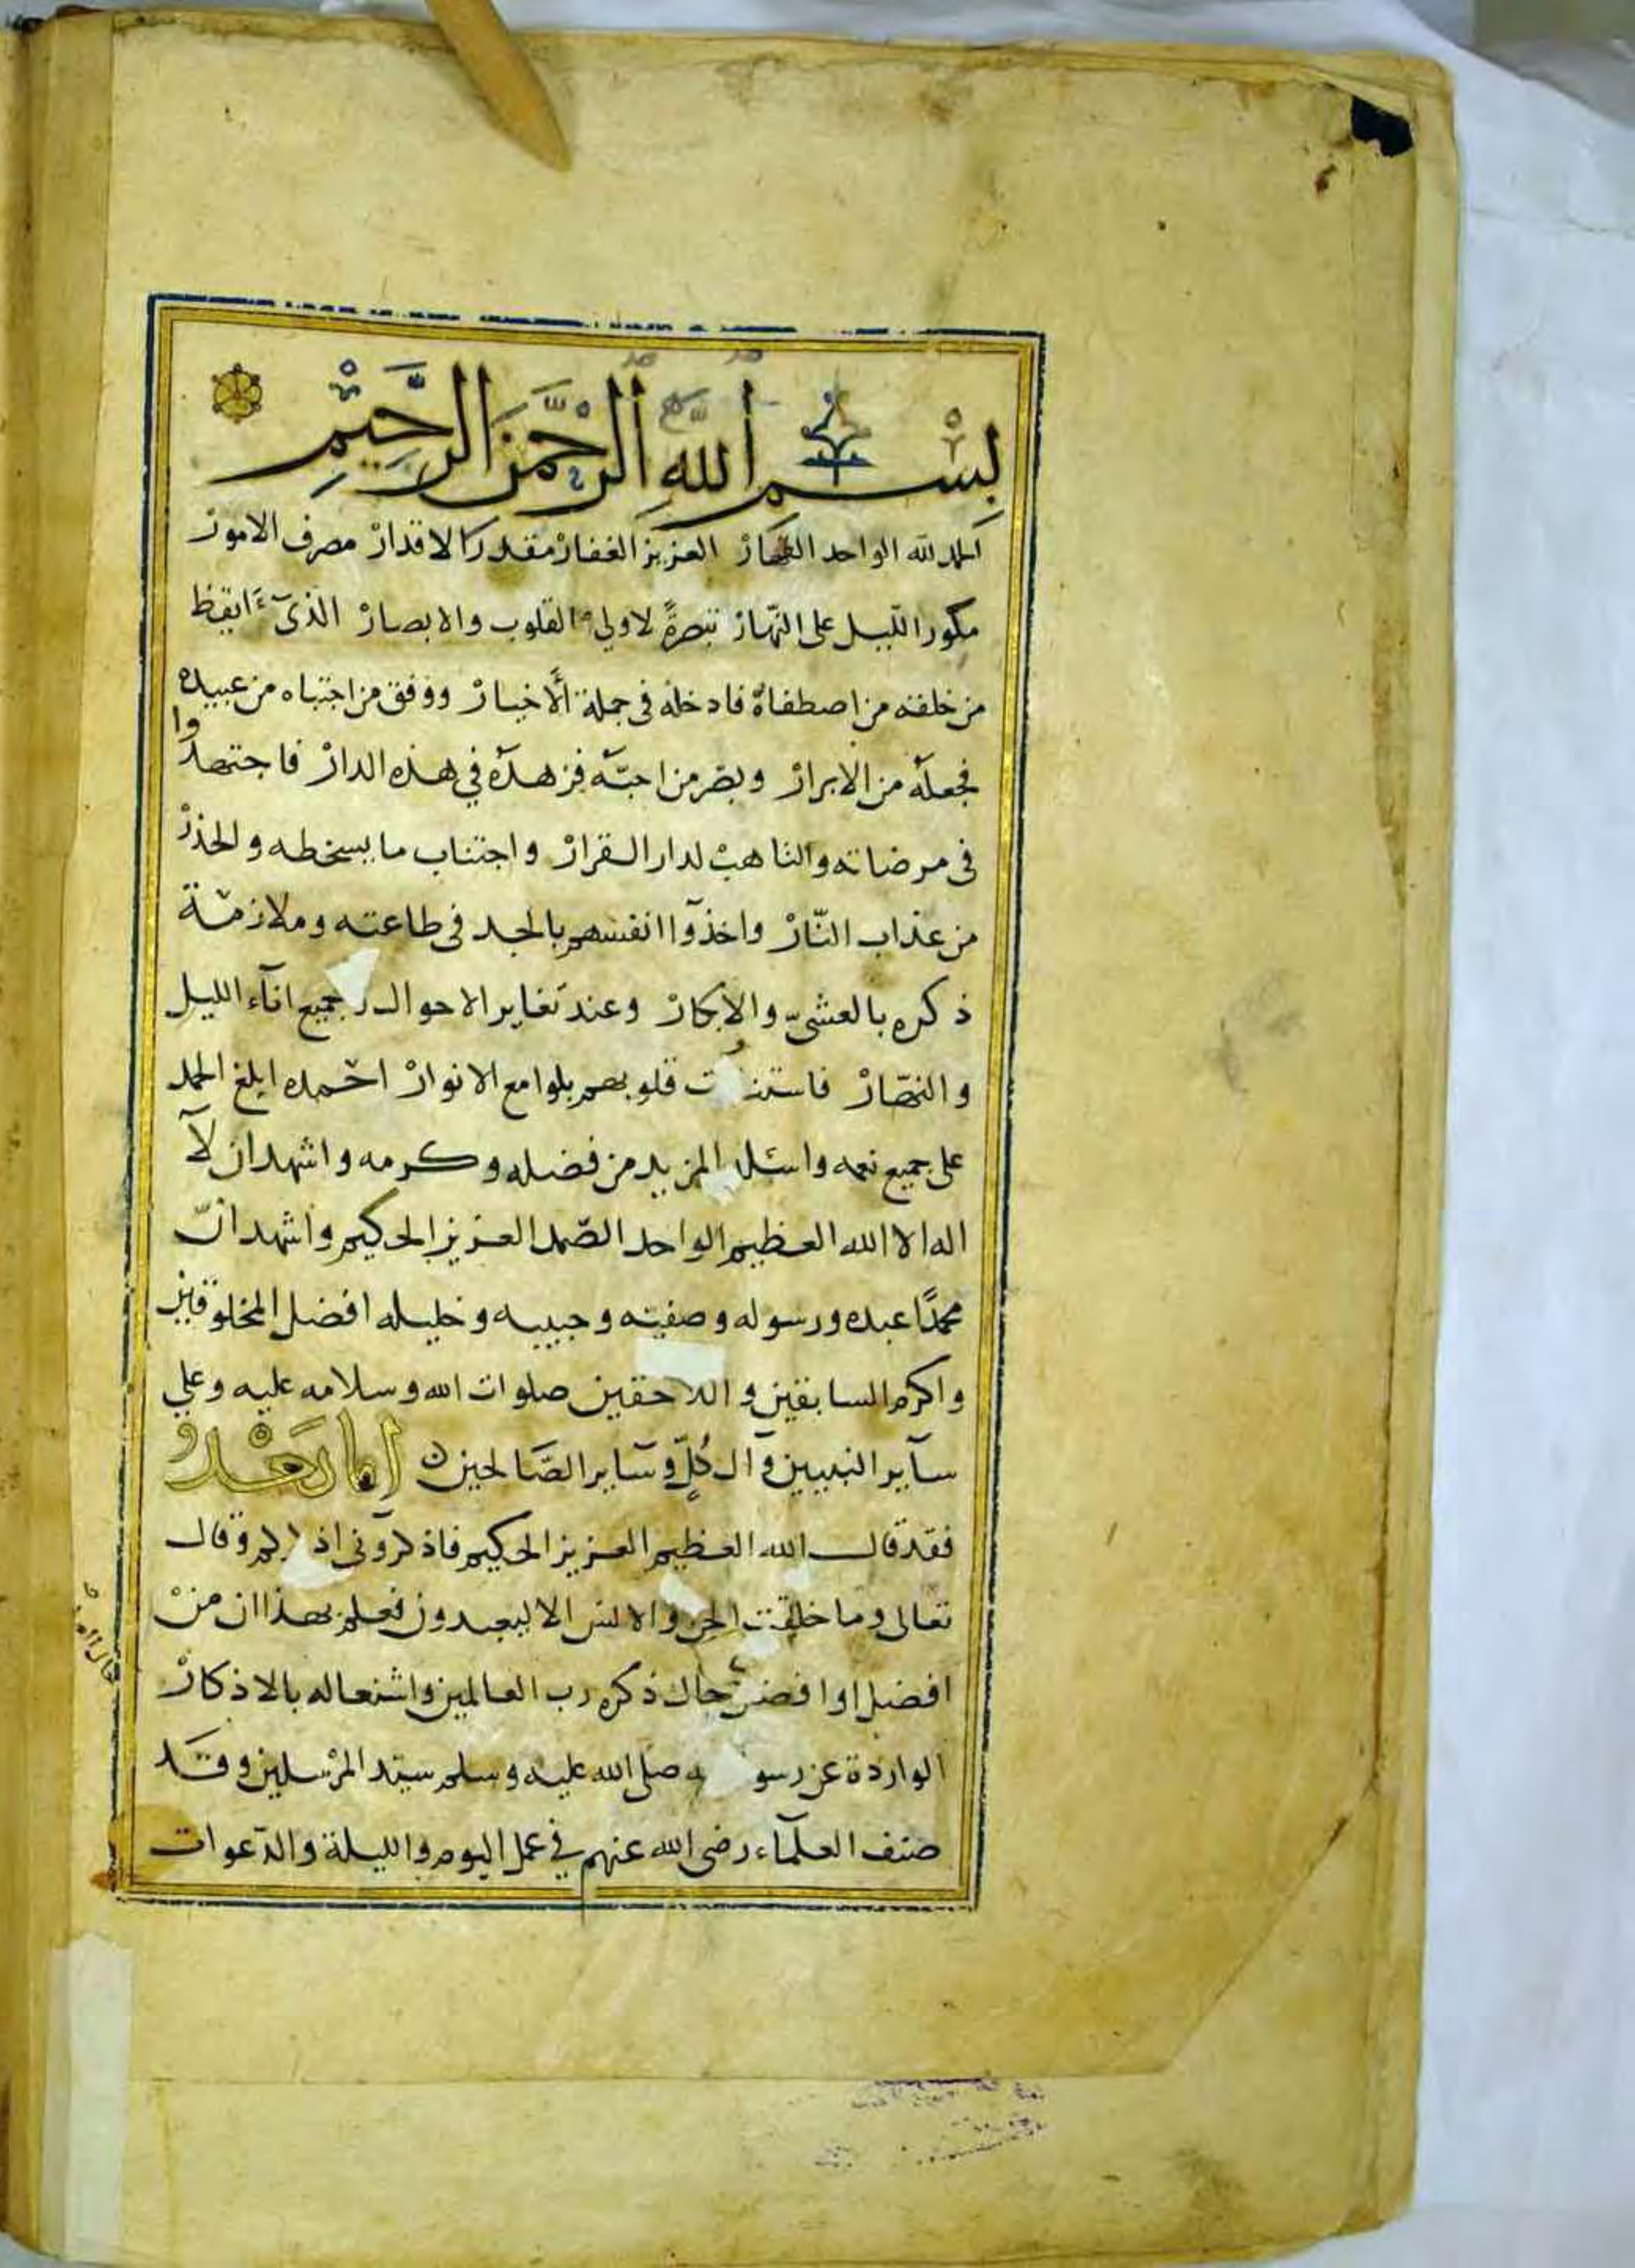 بِسْمِ اللَّهِ الرَّحْمَنِ الرَّحِيمِ
الحمد لله الواحد القهار العزيز الغفار مقدر الاقدار مصرف الامور
مكور الليل على النهار تبصرةً لاولي القلوب والابصار الذى ايقظ
من خلقه من اصطفاه فادخله فى جملة الأخيار ووفق من اجتباه من عبيده
فجعله من الابرار وبصر من احبّه فزهده في هذه الدار فاجتهدوا
فى مرضاته والتاهب لدار القرار واجتناب ما يسخطه والحذر
من عذاب النّار واخذوا انفسهم بالجد فى طاعته وملازمة
ذكره بالعشىّ والابكار وعند تغاير الاحوال جميع اناء الليل
والنهار فاستنـ ت قلوبهم بلوامع الانوار احمده ابلغ الحمد
على جميع نعمه واسئله المزيد من فضله وكرمه واشهد ان لا
اله الا الله العظيم الواحد الصّمد العزيز الحكيم واشهد انّ
محمدًا عبده ورسوله وصفيّه وحبيبه وخليله افضل المخلوقين
واكرم السابقين واللاحقين صلوات الله وسلامه عليه وعلي
سآير النبيين وآل كُلٍّ وسآير الصَّالحين اما بَعْدُ
فقد قال الله العظيم العزيز الحكيم فاذكرونى اذكركم وقال
تعالى وما خلقت الجن والانس الا ليعبدون فعلم بهذا ان منْ
افضل او افضل حال ذكره رب العالمين واشتغاله بالاذكار
الواردة عن رسو ـه صلى الله عليه وسلم سيّد المرْسلين وقَد
صنف العلمآء رضى الله عنهم في عمل اليوم والليلة والدّعوات